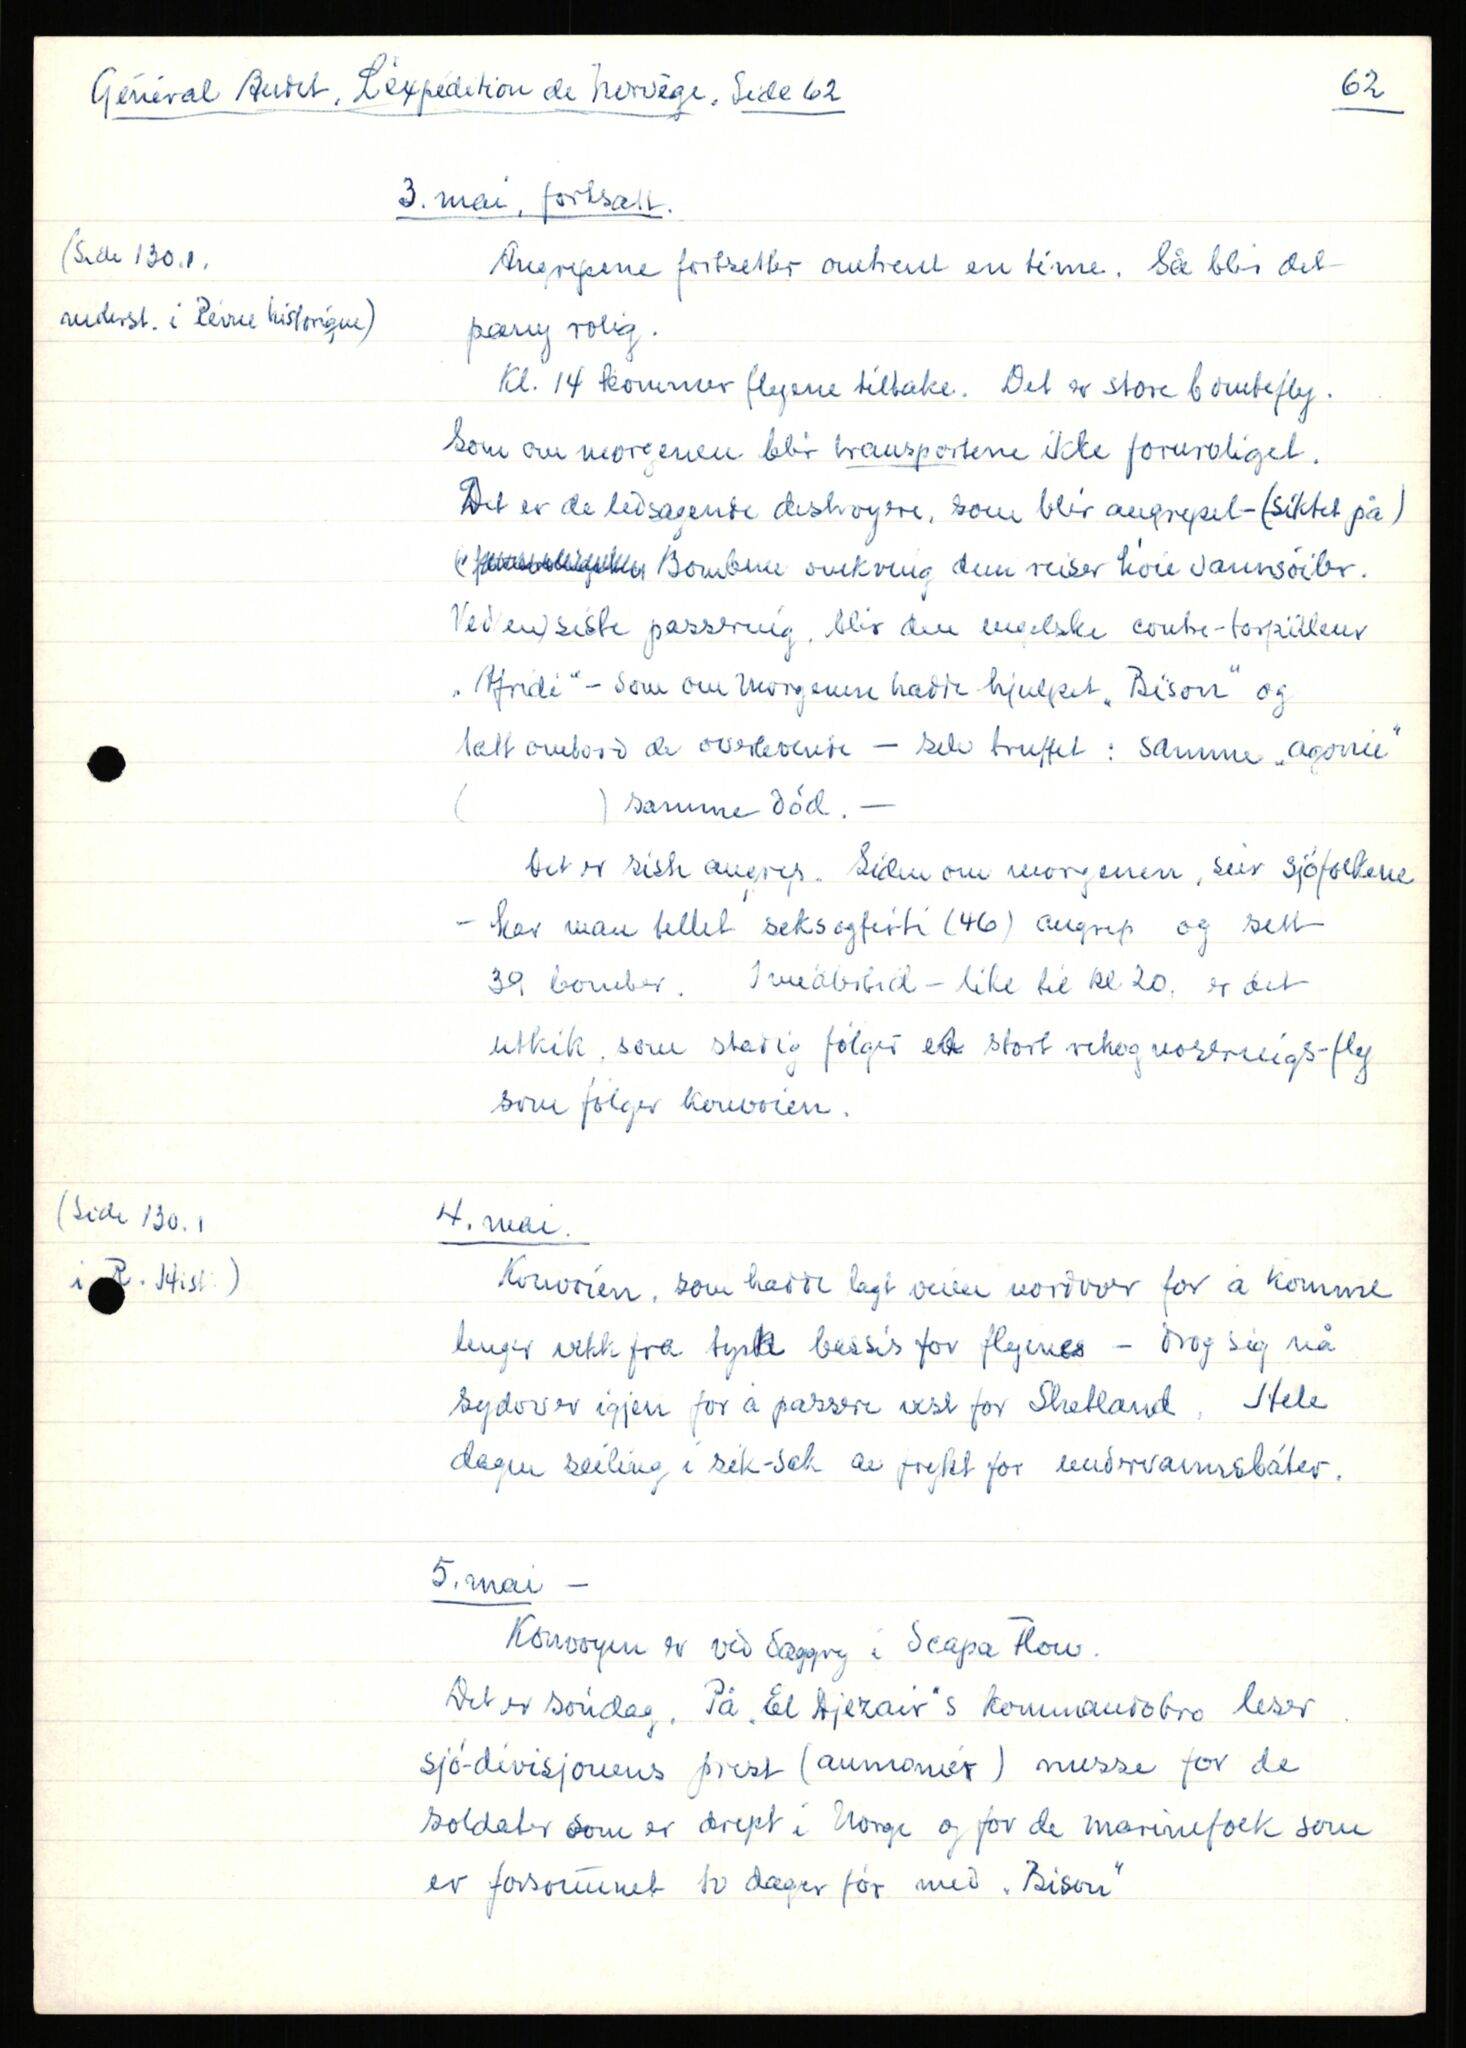 Général Audet, L'expédition de Norvège, Side 62
62
3. mai, fortsatt.
(Side 130.1.
nederst. i Revue historique)
Angrepene fortsetter omtrent en time. Så blir det
påny rolig.
Kl. 14 kommer flyene tilbake. Det er store bombefly.
Som om morgenen blir transportene ikke foruroliget.
Det er de ledsagende destroyere, som blir angrepet - (siktet på)
Bombene omkring dem reiser høie vannsøiler.
Ved (en) siste passering, blir den engelske contre-torpilleur
„Afridi" - som om morgenen hadde hjulpet „Bison" og
tatt ombord de overlevende - selv truffet: samme „agonie"
( ) samme død. -
Det er siste angrep. Siden om morgenen, sier sjøfolkene
- har man tellet seksogførti (46) angrep og sett
39 bomber. Imidlertid - like til kl 20, er det
utkik, som stadig følger et stort rekognoserings-fly
som følger konvoien.
(Side 130.1
i R. Hist.)
4. mai.
Konvoien, som hadde lagt veien nordover for å komme
lenger vekk fra tysk bassis for flyenes - drog sig nå
sydover igjen for å passere vest for Shetland. Hele
dagen seiling i sik-sak av frykt for undervannsbåter.
5. mai -
Konvoyen er ved daggry i Scapa Flow.
Det er søndag. På „El Djezair"s kommandobro leser
sjö-divisjonens prest (aumonier) messe for de
soldater som er drept i Norge og for de marinefolk som
er forsvunnet to dager før med „Bison"